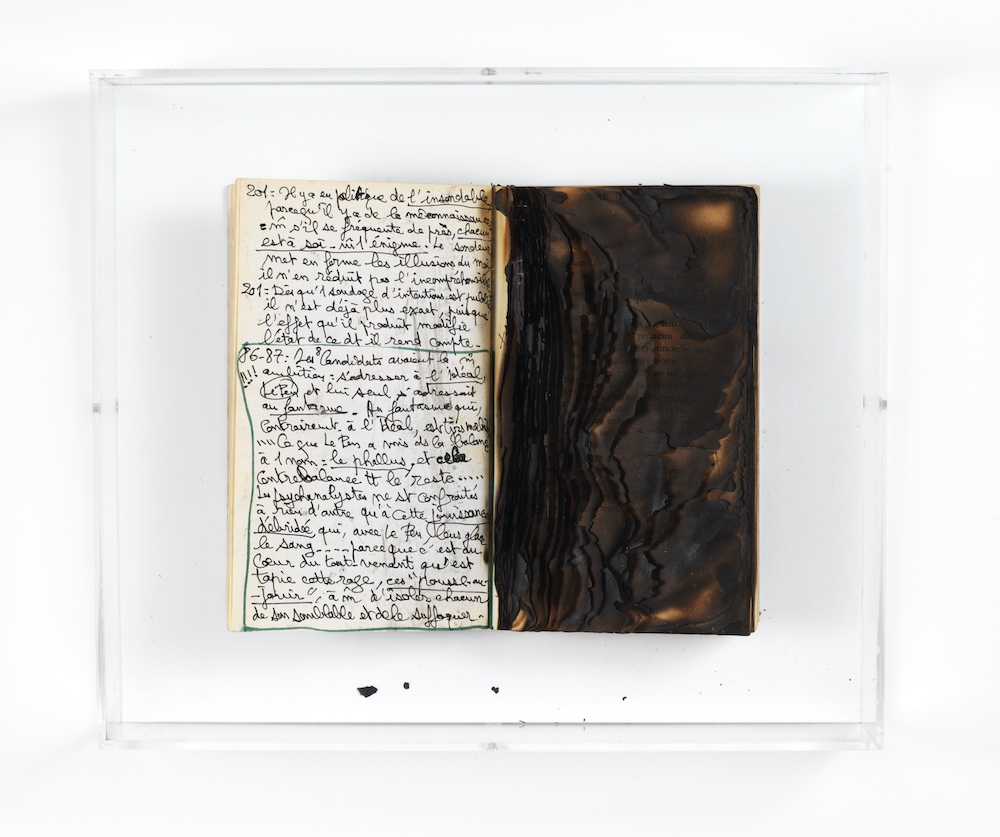 201: Il y a en politique de l'insondable
parcequ'il y a de la méconnaissance
m̂ s'il se fréquente de près, chacun
est à soi-m̂ l'énigme. Le sondeur
met en forme les illusions du moi
il n'en réduit pas l'incompréhensible
201: Dès qu'1 sondage d'intentions est publié
il n'est déjà plus exact, puisque
l'effet qu'il produit modifie
l'état de ce dt il rend compte.
86-87: Les Candidats avaient la m̂
!!! ambition: s'adresser à l'Idéal,
Le Pen et lui seul s'adressait
au fantasme. Au fantasme qui,
Contrairemt à l'Idéal,
"" Ce que Le Pen a mis ds la balance
à 1 nom: le phallus, et cela
Contrebalance tt le reste.....
Les psychanalystes ne st confrontés
à rien d'autre qu'à cette jouissance
débridée qui, avec Le Pen, leur glace
le sang .... parce que c'est au
Cœur du tout-venant qu'est
tapie cette rage, ces "pousse-au-
-jouir", à m̂ d'isoler chacun
de son semblable et de le suffoquer-